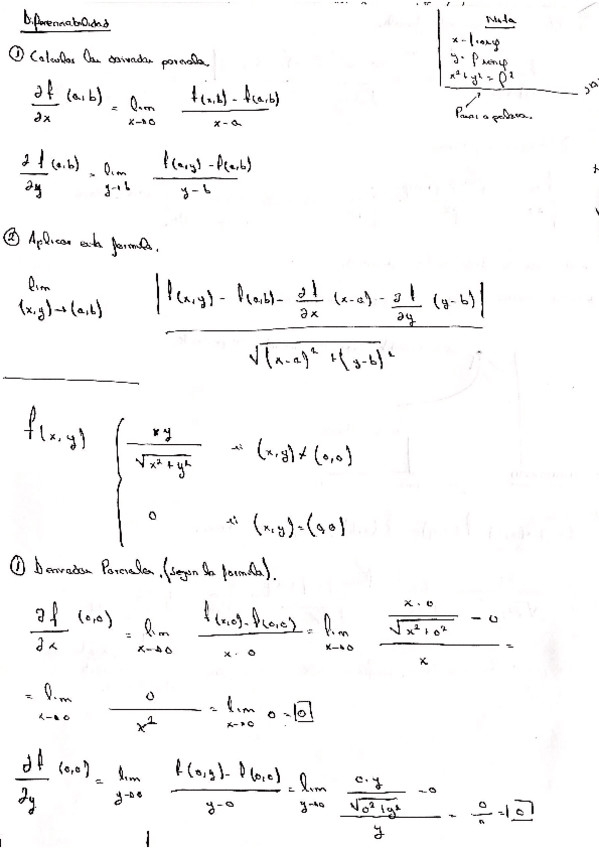 Diferenciabilidad
Nota
x = ρcosφ
y = ρsenφ
x² + y² = ρ²
Pasar a polares.
① Calcular las derivadas parciales.
∂f/∂x (a,b) = lim x→0 f(x,b) - f(a,b) / x - a
∂f/∂y (a,b) = lim y→b f(a,y) - f(a,b) / y - b
② Aplicar esta formula.
lim (x,y)→(a,b) |f(x,y) - f(a,b) - ∂f/∂x (x-a) - ∂f/∂y (y-b)| / √(x-a)² + (y-b)²
f(x,y) { xy / √x² + y² si (x,y) ≠ (0,0)
0 si (x,y) = (0,0)
① Derivadas Parciales. (segun la formula).
∂f/∂x (0,0) = lim x→0 f(x,0) - f(0,0) / x - 0 = lim x→0 x·0 / √x² + 0² - 0 / x =
= lim x→0 0 / x² = lim x→0 0 = 0
∂f/∂y (0,0) = lim y→0 f(0,y) - f(0,0) / y - 0 = lim y→0 0·y / √0² + y² - 0 / y = = 0